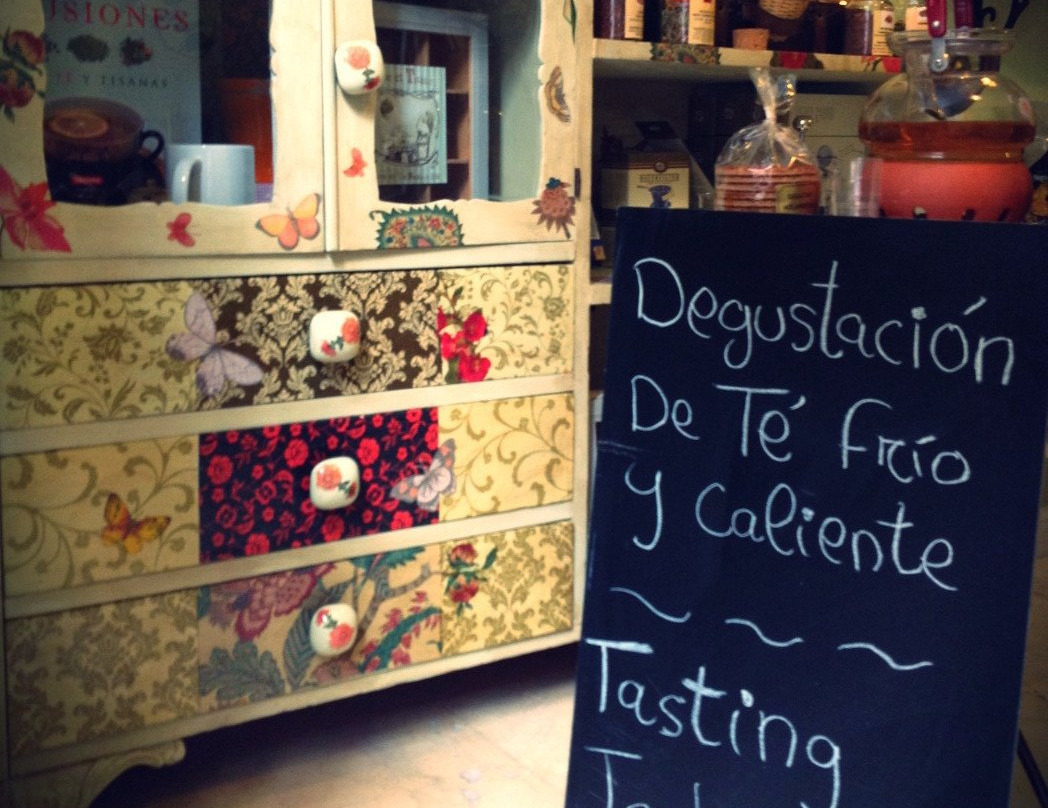 USIONES
TÉ Y TISANAS
Degustación
De Té frío
y caliente
~ ~ ~
Tasting